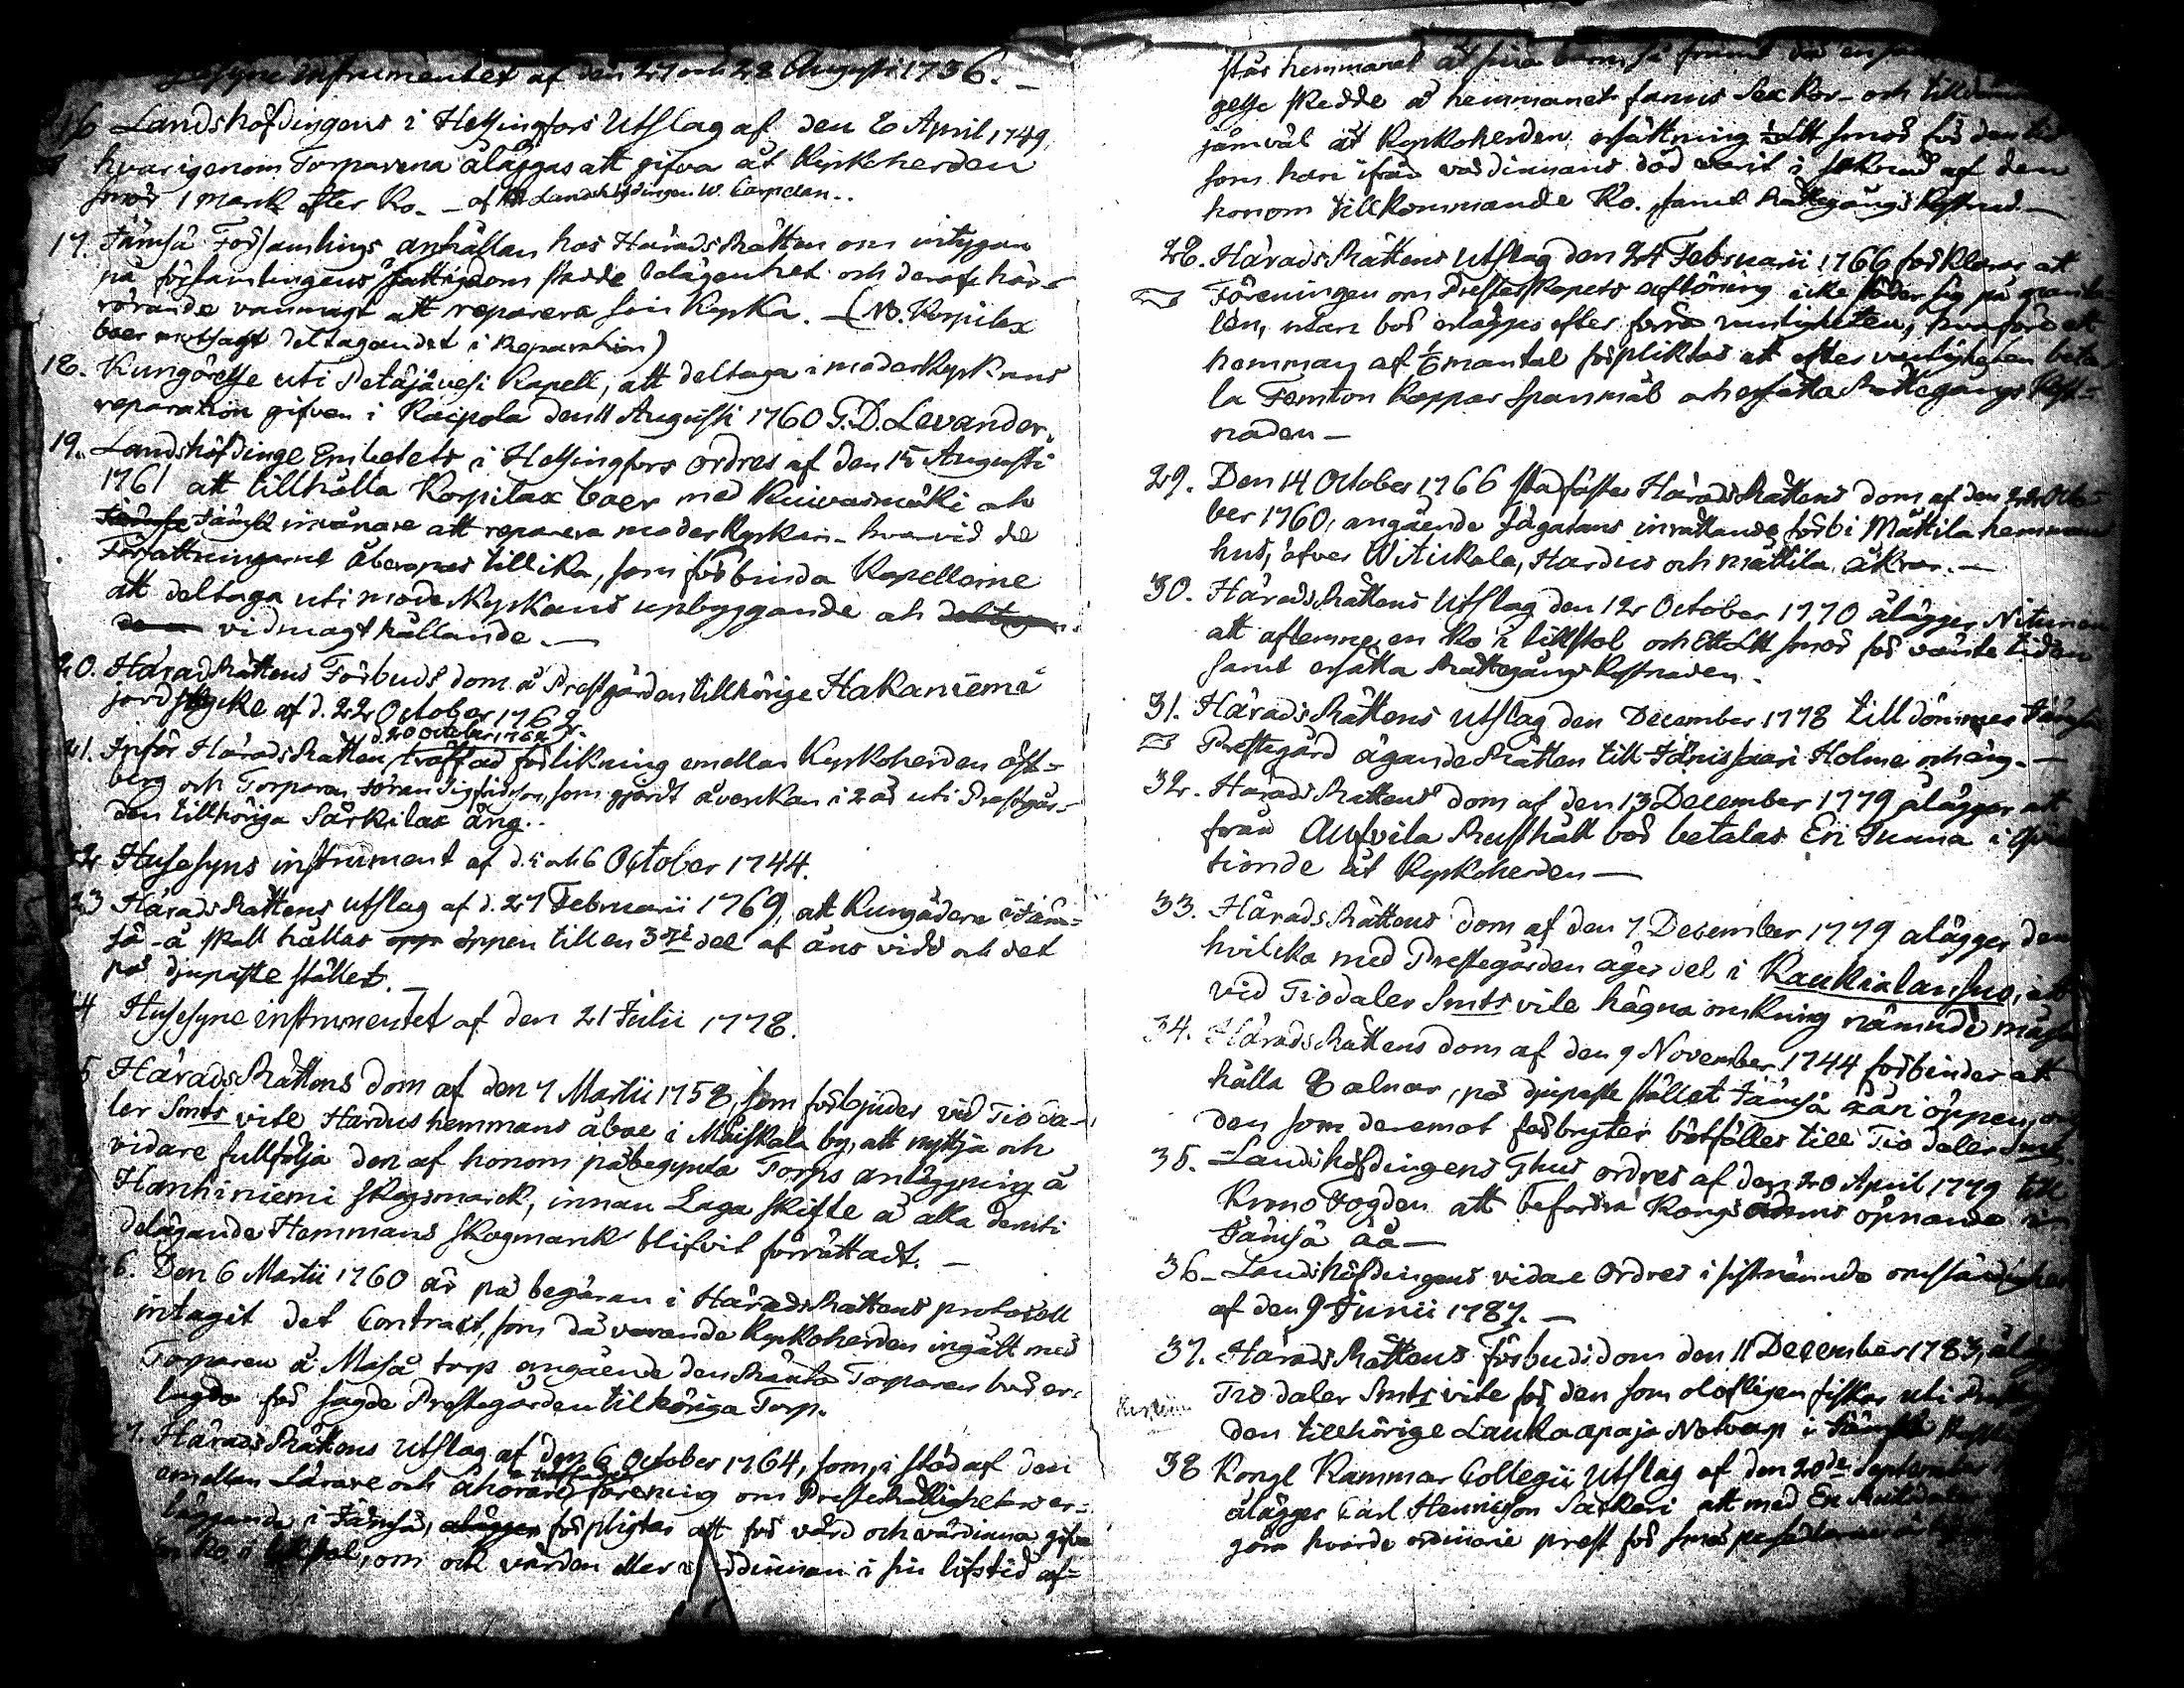 Husesyne instrumentet af den 27 och 28 Augusti 1756. –
16 Landshöfdingens i Helsingfors Utslag af den 8 April 1749,
hvarigenom Torparena åläggas att gifva åt Kyrkoherden
smör 1 Marck efter Ko. – af Landshöfdingen W. Carpelan..
17. Jämsä Församlings anhållan hos HäradsRätten om intygan
på församlingens fattigdom belägenhet och deraf här-
rörande vanmagt att reparera sin Kyrka. – (NB. Korpilax
boer motsagt deltagandet i Reparation)
18. Kungörelse uti Petäjävesi Kapell, att deltaga i moderkyrkans
reparation gifven i Kaipola den 11 Augusti 1760 G. D. Levander.
19. Landshöfdinge Embetets i Helsingfors Ordres af den 15 Augusti
1761 att tillhålla Korpilax boer med Kuivasmäki och
Jämsä invånare att reparera moderkyrkan – hvarvid de
Författningarne åberopas tillika, som förbinda Kapellerne
att deltaga uti moderkyrkans upbyggande och
vidmagthållande. –
20. HäradsRättens Förbuds dom å Prestgården tillhörige Hakaniemi
jordstycke af d. 22 October 1762.
d. 20 October 1762
21. Inför HäradsRätten träffad förlikning emellan Kyrkoherden öst-
berg och Torparen Göran Sigfridsson, som gjordt åverkan i 2 år uti Prestgår-
den tillhöriga Särkilax äng..
22 Husesyns instrument af d. 5 och 6 October 1744.
23 HäradsRättens utslag af d. 27 Februarii 1769, att Kungådern i Jäm-
sä-å skall hållas öppen till en 3dje del af åns vidd och det
på djupaste stället. –
24 Husesyne instrumentet af den 21 Julii 1778.
25 HäradsRättens dom af den 7 Martii 1758, som förbjuder vid Tio da-
ler Smts vite Hardus hemmans åboe i Maiskala by, att nyttja och
vidare fullfölja den af honom påbegynta Torps anläggning å
Hanhiniemi skogsmarck, innan Laga skifte å alla deruti
delägande Hemmans skogmarck blifvit förrättadt. –
26. Den 6 Martii 1760 är på begäran i HäradsRättens protocoll
intagit det Contract, som då varande Kyrkoherden ingått med
Torparen å Maså torp angående den Ränta Torparen bör er-
lägga för sagde Prestegården tilhöriga Torp.
27. HäradsRättens Utslag af den 6 October 1764, som, i stöd af den
emellan Lärare och åhörare förening om Presterättigheters er-
läggande i Jämsä, förpligtar att för värd och värdinna gifva
en Ko i likstol, om och värden eller värdinnan i sin lifstid af-
står hemmanet åt sina barn så framt
gelse skedde å hemmanet fanns Sex Kor – och
jämväl åt Kyrkoherden ersättning ½ Ltt smör för den tid
som han ifrån värdinnans död varit i saknad af den
honom tillkommande Ko, samt Rättegångs Kostnad. –
28. HäradsRättens Utslag den 24 Februarii 1766 förklarar att
Föreningen om Presterskapets aflöning icke stöder sig på
len, utan bör erlägges efter förra vanligheten, hvarföre ett
hemman af 1/6 mantal förpliktas att efter vanligheten beta-
la Femton Kappar spannmål och ersätta Rättegångs Kost-
naden –
29. Den 14 October 1766 stadfästes HäradsRättens dom af den 22 Octo-
ber 1760, angående Fägatans inrättande förbi Mattila hemmans
hus, öfver Witikala, Hardus och Mattila åkrar. –
30. HäradsRättens Utslag den 12 October 1770 ålägger Nitunen
att aflemna en Ko i likstol och Ett Ltt smör för vänte tiden
samt ersätta Rättegångs Kostnaden.
31. HäradsRättens utslag den December 1778 tilldömmes Jämsä
Prestegård ägande Rätten till Jänissaari Holme och äng. –
32. HäradsRättens dom af den 13 December 1779 ålägger att
från Aufvila Rusthåll bör betalas En Tunna i
tionde åt Kyrkoherden –
33. HäradsRättens dom af den 7 December 1779 ålägger dem
hvilka med Prestegården äger del i Raukialansuo, att
vid Tio daler Smts vite hägna omkring nämnde
34. HäradsRättens dom af den 9 November 1744 förbinder att
hålla 8 alnar, på djupaste stället Jämsä öppen, och
den som deremot förbryter bötfälles till Tio daler Smt
35. Landshöfdingens Thus ordres af den 20 April 1779 till
KronoFogden att befordra Kongsådrans öpnande i
Jämsä åå –
36 – Landshöfdingens vidare Ordres i sistnämnde omständighet
af den 9 Junii 1787. –
37. HäradsRättens förbudsdom den 11 December 1783,
Tio daler Smts vite för den som olofligen fiskar uti
den tillhörige Lauka apaja Notvarp i Jämsä
38 Kongl Kammar Collegii Utslag af den 20de September
ålägger Carl Henricsson Säckeri att med En
göra hvarde ordinarie prest för